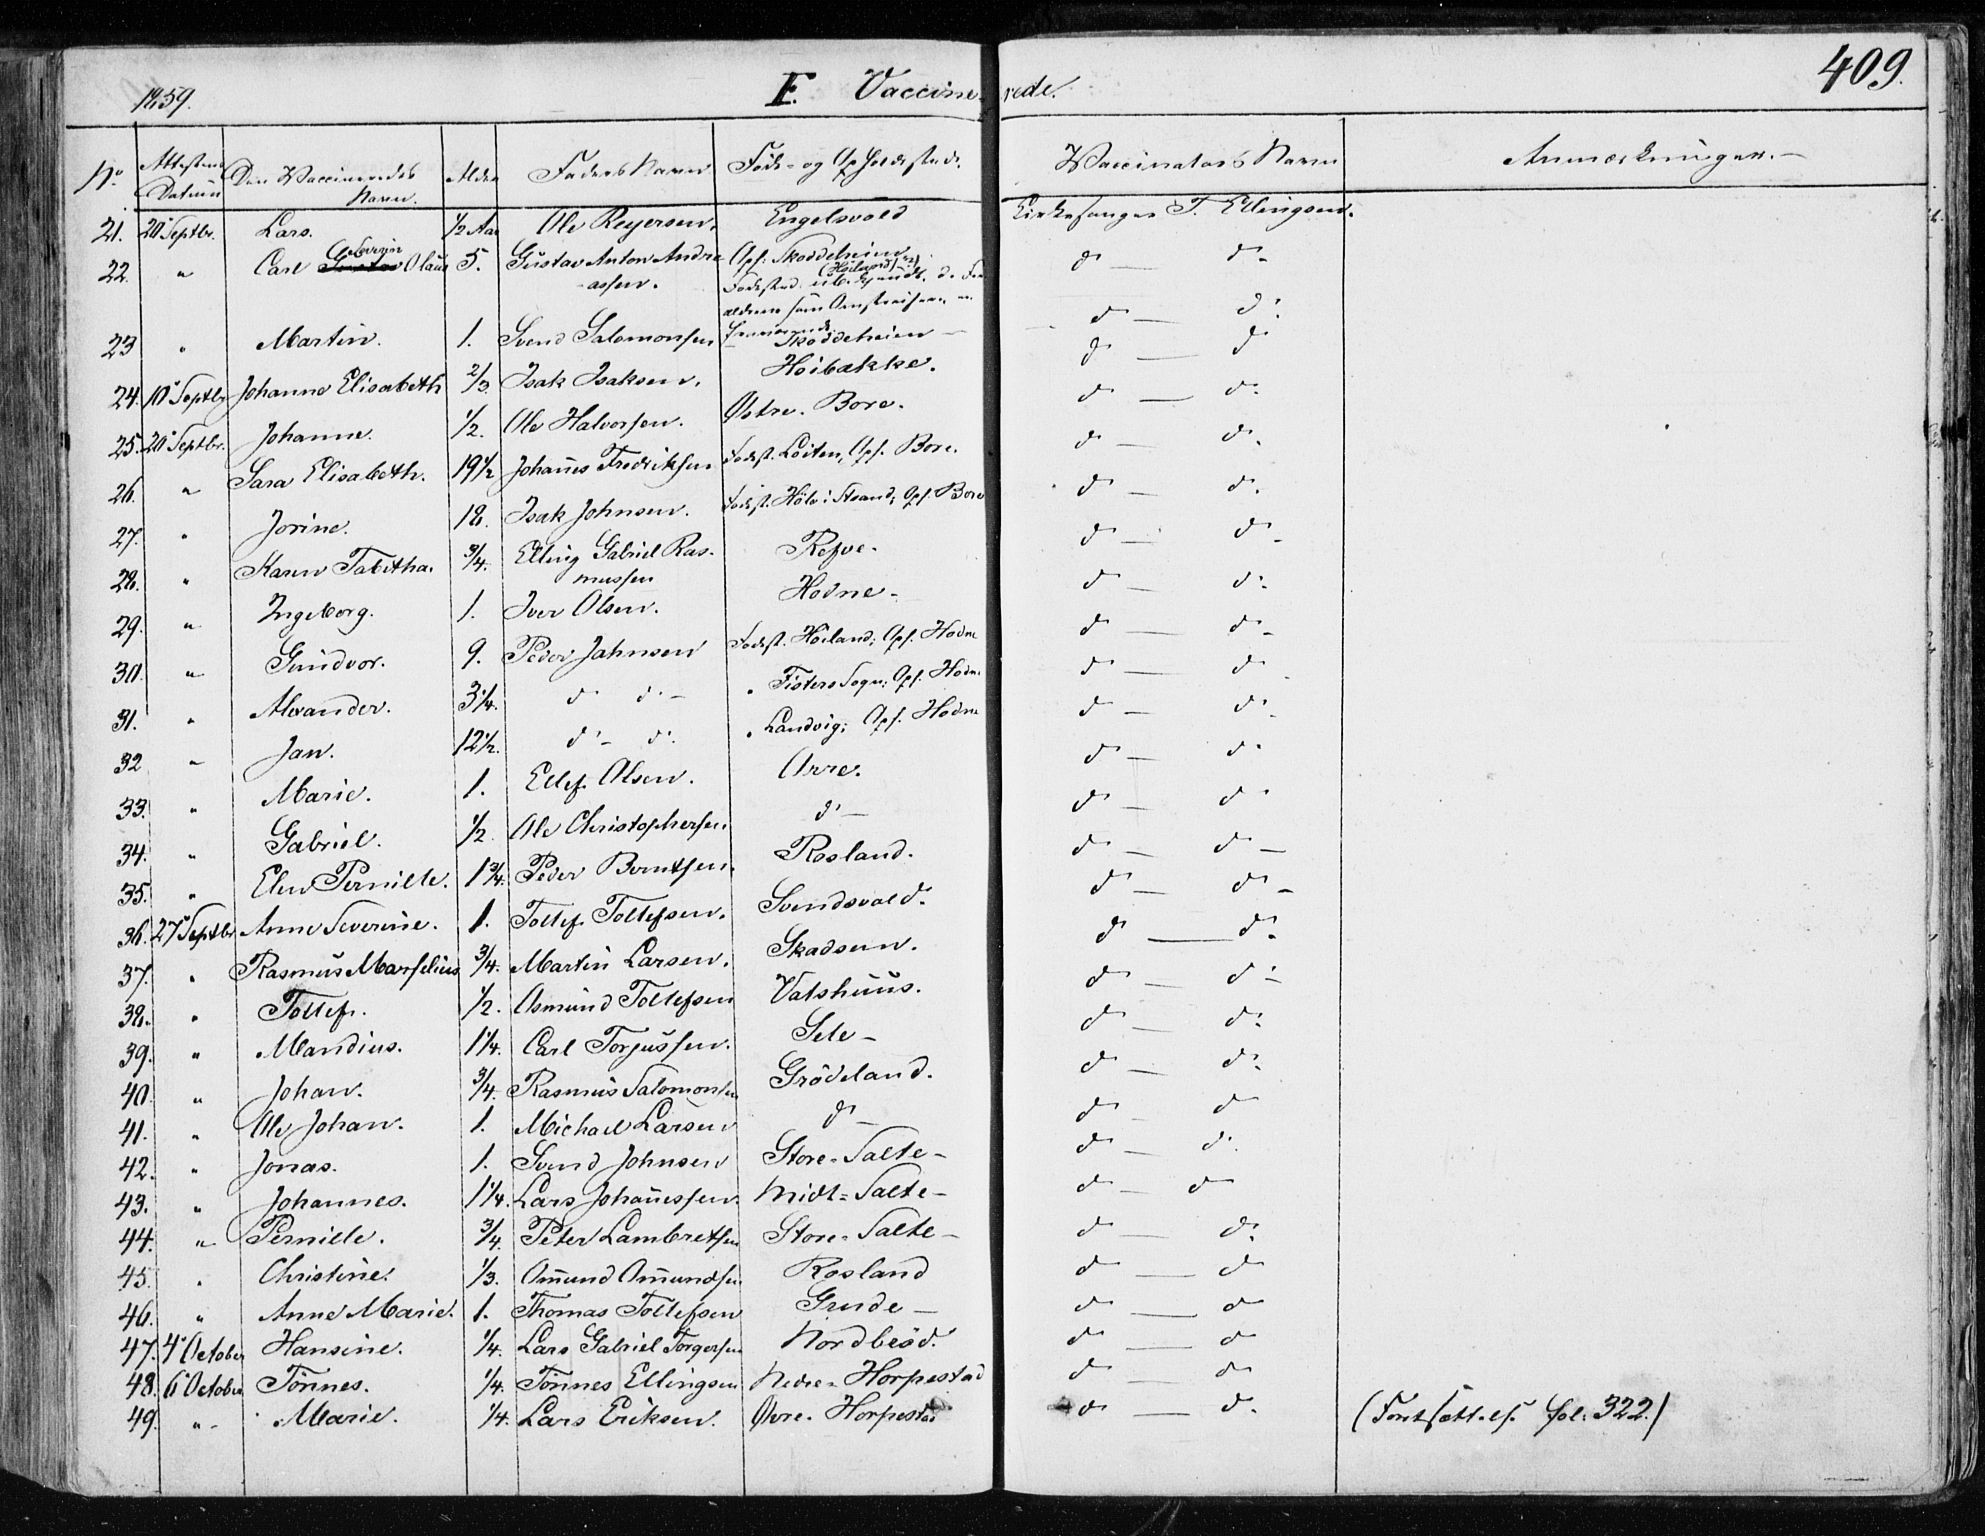 409.
1859. F. Vaccinerede.
No Attestens Datum Den Vaccineredes Navn. Alder Faders Navn Føde- og Opholdssted. Vaccinators Navn Anmærkninger.
21. 20 Septbr. Lars. 1/2 Aar Ole Reyersen. Engelsvold Kirkesanger T. Ellingsen.
22. " Carl Severin Olaus 5. Gustav Anton Andreassen. Oph: Skoddeheien d° d°
Fødested
23 " Martin. 1. Svend Salomonsen Skoddeheien d° d°
24. 10 Septbr Johanne Elisabeth 2/3 Isak Isaksen. Høibakke. d° d°
25. 20 Septbr. Johanne. 1/2. Ole Halvorsen. Østre. Bore. d° d°
26. " Sara Elisabeth. 19 1/2 Johañes Fredriksen Fødest. Løiten, Oph. Bore. d° d°
27. " Jorine. 18. Isak Johnsen. Fødest. Höle i Strand; Oph. Bore d° d°
28. " Karen Tabitha. 3/4. Elling Gabriel Rasmussen Refve. d° d°
29. " Ingeborg. 1. Iver Olsen. Hodne d° d°
30. " Gundvor. 9. Peder Jahnsen Fødest. Höiland; Oph. Hodne d° d°
31. " Alexander. 3 1/4. d° d° " Fisters Sogn; Oph. Hodne d° d°
32 " Jan. 12 1/2. d° d° " Landvig; Oph. Hodne d° d°
33. " Marie. 1. Ellef Olsen. Orre. d° d°
34. " Gabriel. 1/2. Ole Christophersen. d° d° d°
35. " Elen Pernille. 1 3/4. Peder Berntsen. Rosland. d° d°
36. 27 Septbr Anne Severine. 1. Tollef Tollefsen. Svendsvold. d° d°
37. " Rasmus Marselius 3/4. Martin Larsen. Skadsem. d° d°
38. " Tollef. 1/2. Asmund Tollefsen Vatshuus. d° d°
39. " Mandius. 1 1/4. Carl Torjussen. Sele d° d°
40. " Johan. 3/4. Rasmus Salomonsen Grödeland. d° d°
41. " Ole Johan. 1. Michael Larsen d° d° d°
42. " Jonas. 1. Svend Johnsen Store-Salte d° d°
43. " Johannes. 1 1/4. Lars Johañessen. Midt-Salte d° d°
44. " Pernille. 3/4. Peter Lambretsen Store-Salte d° d°
45. " Christine. 1/3. Omund Omundsen Rosland d° d°
46. " Anne Marie. 1. Thomas Tollefsen Grude d° d°
47. 4 October Hansine. 1/4. Lars Gabriel Torgersen Nordbröd. d° d°
48. 6 October Tönnes. 1/4. Tönnes Ellingsen Nedre-Horpestad d° d°
49. " Marie. 1/4. Lars Eriksen. Øvre-Horpestad d° d° (Fortsættelse fol. 322.)